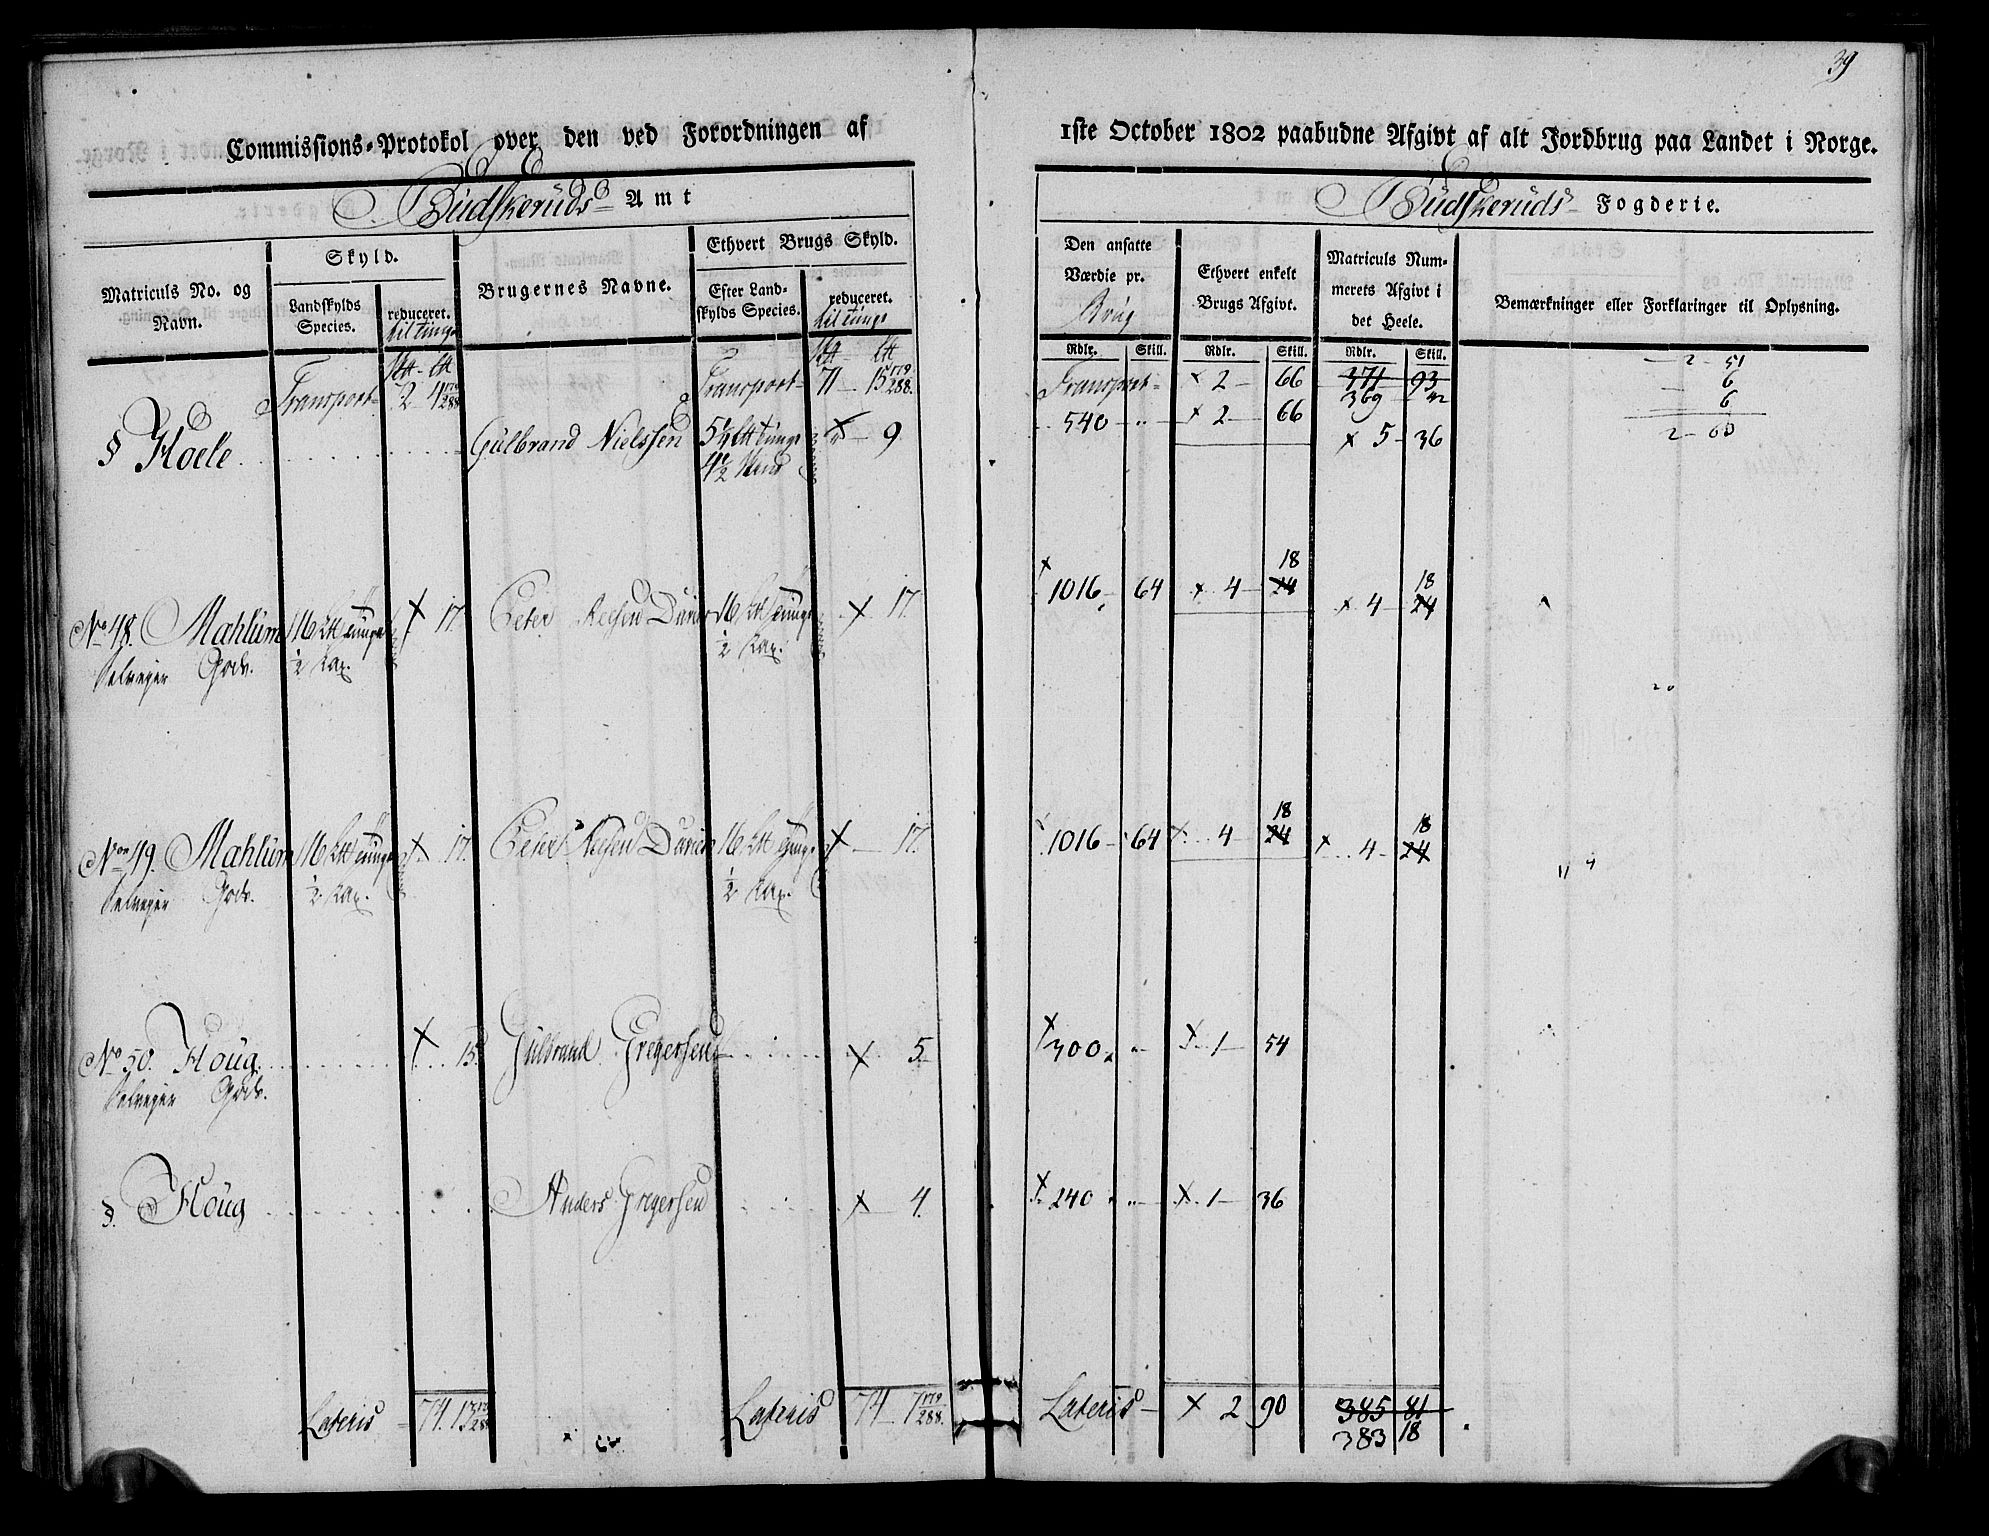 39
Commissions-Protokol over den ved Forordningen af 1ste October 1802 paabudne Afgivt af alt Jordbrug paa Landet i Norge.
Budskeruds Amt
Budskeruds Fogderie.
Matriculs No. og Navn.
Skyld.
Landskylds Species.
reduceret. til tunge
Brugernes Navne.
Ethvert Brugs Skyld.
Efter Landskylds Species.
reduceret. til tunge
Den ansatte Værdie pr. Brug
Ethvert enkelt Brugs Afgivt.
Matriculs Nummerets Afgivt i det Heele.
Bemærkninger eller Forklaringer til Oplysning.
Rdlr. Skill. Rdlr. Skill. Rdlr. Skill.
Transport Transport 71 15 179/288. Transport × 2 66 371 93
369 42
2 51
6
6
2 60
§ Hoele Gulbrand Nielssen 5 1/2 Lt tunge 4 1/2 9 540 × 2 66 × 5 36
No 48. Mahlum 16 Lt tunge × 17. Peter 16 Lt tunge × 17. × 1016 64 × 4 24 18 × 4 24 18
Selveyer Gods. 1/2 Kax. 1/2 Kax.
No 49. Mahlum 16 Lt tunge × 17. Peter 16 Lt tunge × 17. 1016 64 × 4 24 18 × 4 24 18
Selveyer Gods. 1/2 Kax. 1/2 Kax.
No 50. Houg × 15. Gulbrand Gregersen × 5. × 300 × 1 54
Selveyer Gods.
§. Houg Anders Gregersen × 4. × 240 × 1 36
Lateris 74. Lateris 74 7 179/288. Lateris × 2 90 385 81
383 18